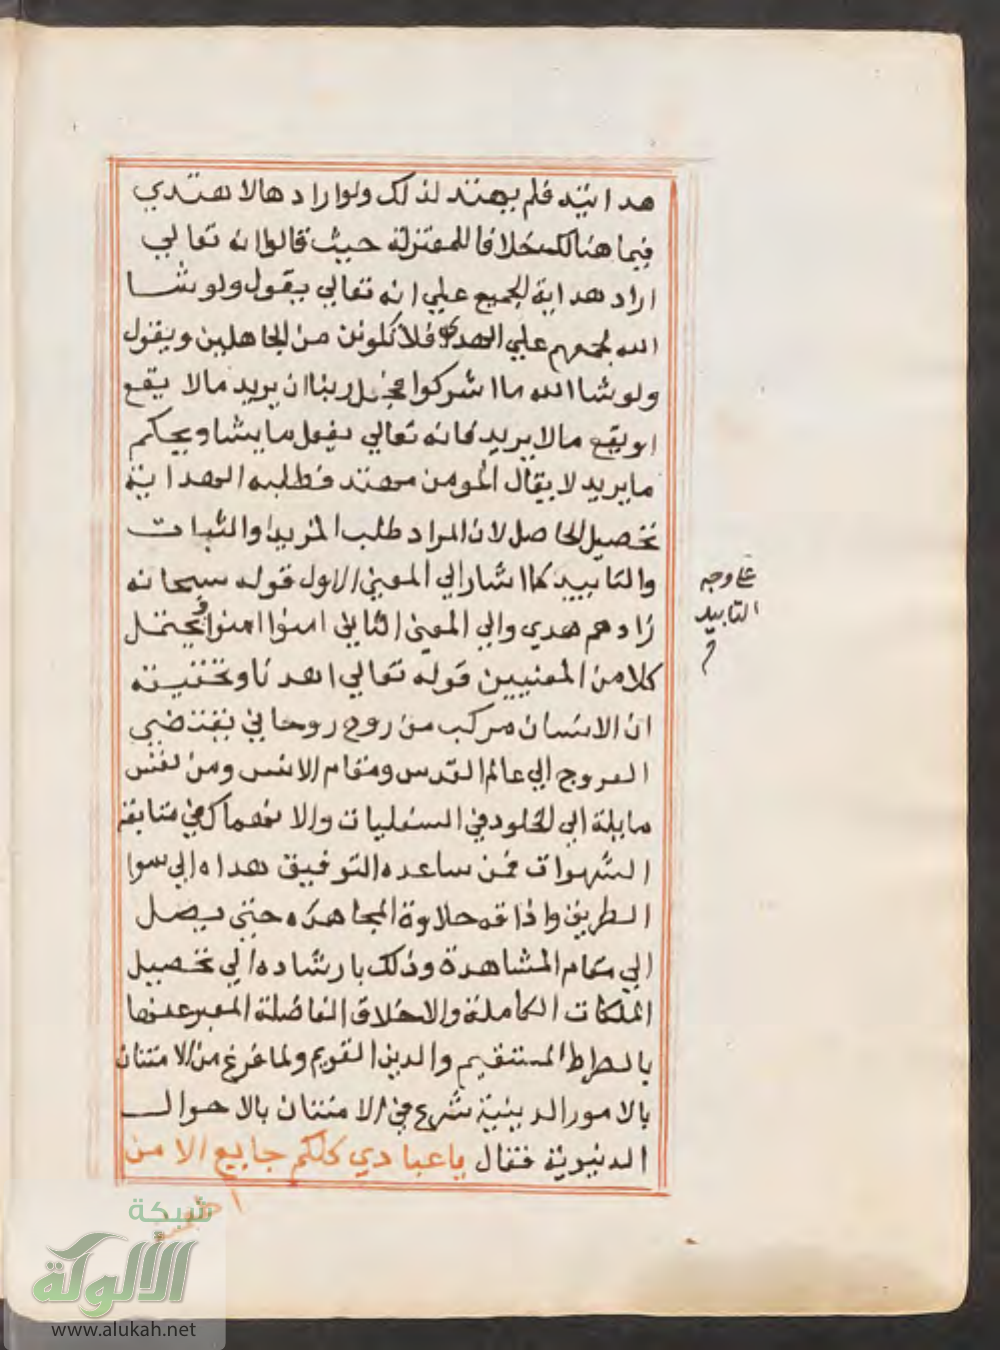 هدايته فلم يهتد لذلك ولو ارادها لاهتدي
فيما هنالك خلافا للمعتزلة حيث قالوا انه تعالي
اراد هداية الجميع علي انه تعالي يقول ولو شا
الله لجمعهم علي الهدي فلا تكونن من الجاهلين ويقول
ولو شا الله ما اشركوا فجل ربنا ان يريد مالا يقع
او يقع مالا يريد فانه تعالي يفعل ما يشا ويحكم
ما يريد لا يقال المومن مهتد فطلبه الهداية
تحصيل الحاصل لان المراد طلب المزيد والثبات
والتابيد كما اشار الي المعني الاول قوله سبحانه
زادهم هدي والي المعني الثاني امنوا امنوا ويحتمل
كلا من المعنيين قوله تعالي اهدنا وتحقيقه
ان الانسان مركب من روح روحاني يقتضي
العروج الي عالم القدس ومقام الانس ومن نفس
مايلة الي الخلود في السفليات والانهماك في متابعة
الشهوات فمن ساعده التوفيق هداه الي سوا
الطريق واذاقه حلاوة المجاهده حتي يصل
الي مقام المشاهدة وذلك بارشاده الي تحصيل
الملكات الكاملة والاخلاق الفاضلة المعبر عنها
بالصراط المستقيم والدين القويم ولما فرغ من الامتنان
بالامور الدينية شرع في الامتنان بالاحوال
الدنيوية فقال يا عبادي كلكم جايع الا من
اطعمته
علي وجه
التابيد
شبكة
الألوكة
www.alukah.net